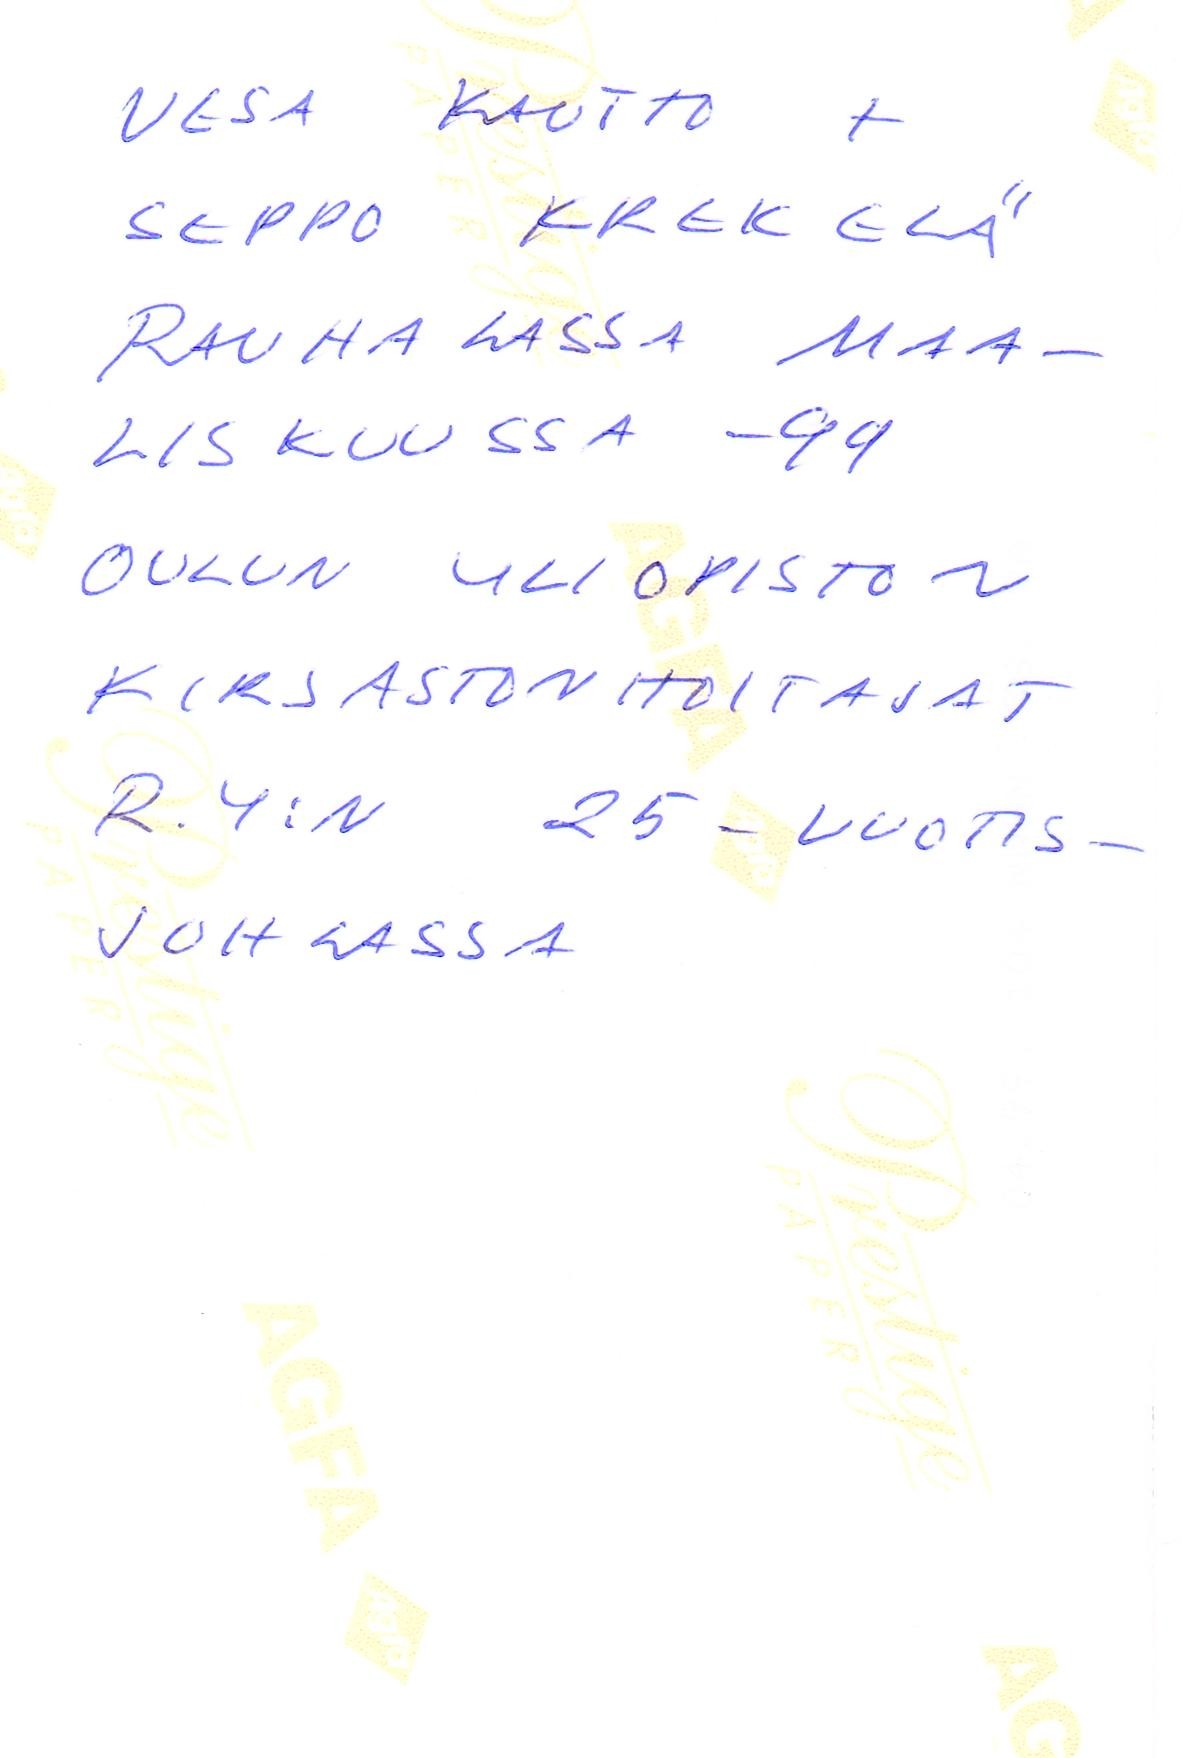 VESA KAUTTO +
SEPPO KREKELÄ
RAUHALASSA MAA-
LISKUUSSA -99
OULUN YLIOPISTON
KIRJASTONHOITAJAT
R.Y:N 25-VUOTIS-
JUHLASSA
Prestige
PAPER
AGFA
AGFA
Prestige
PAPER
AGFA
Prestige
PAPER
AGFA
AGFA
AG